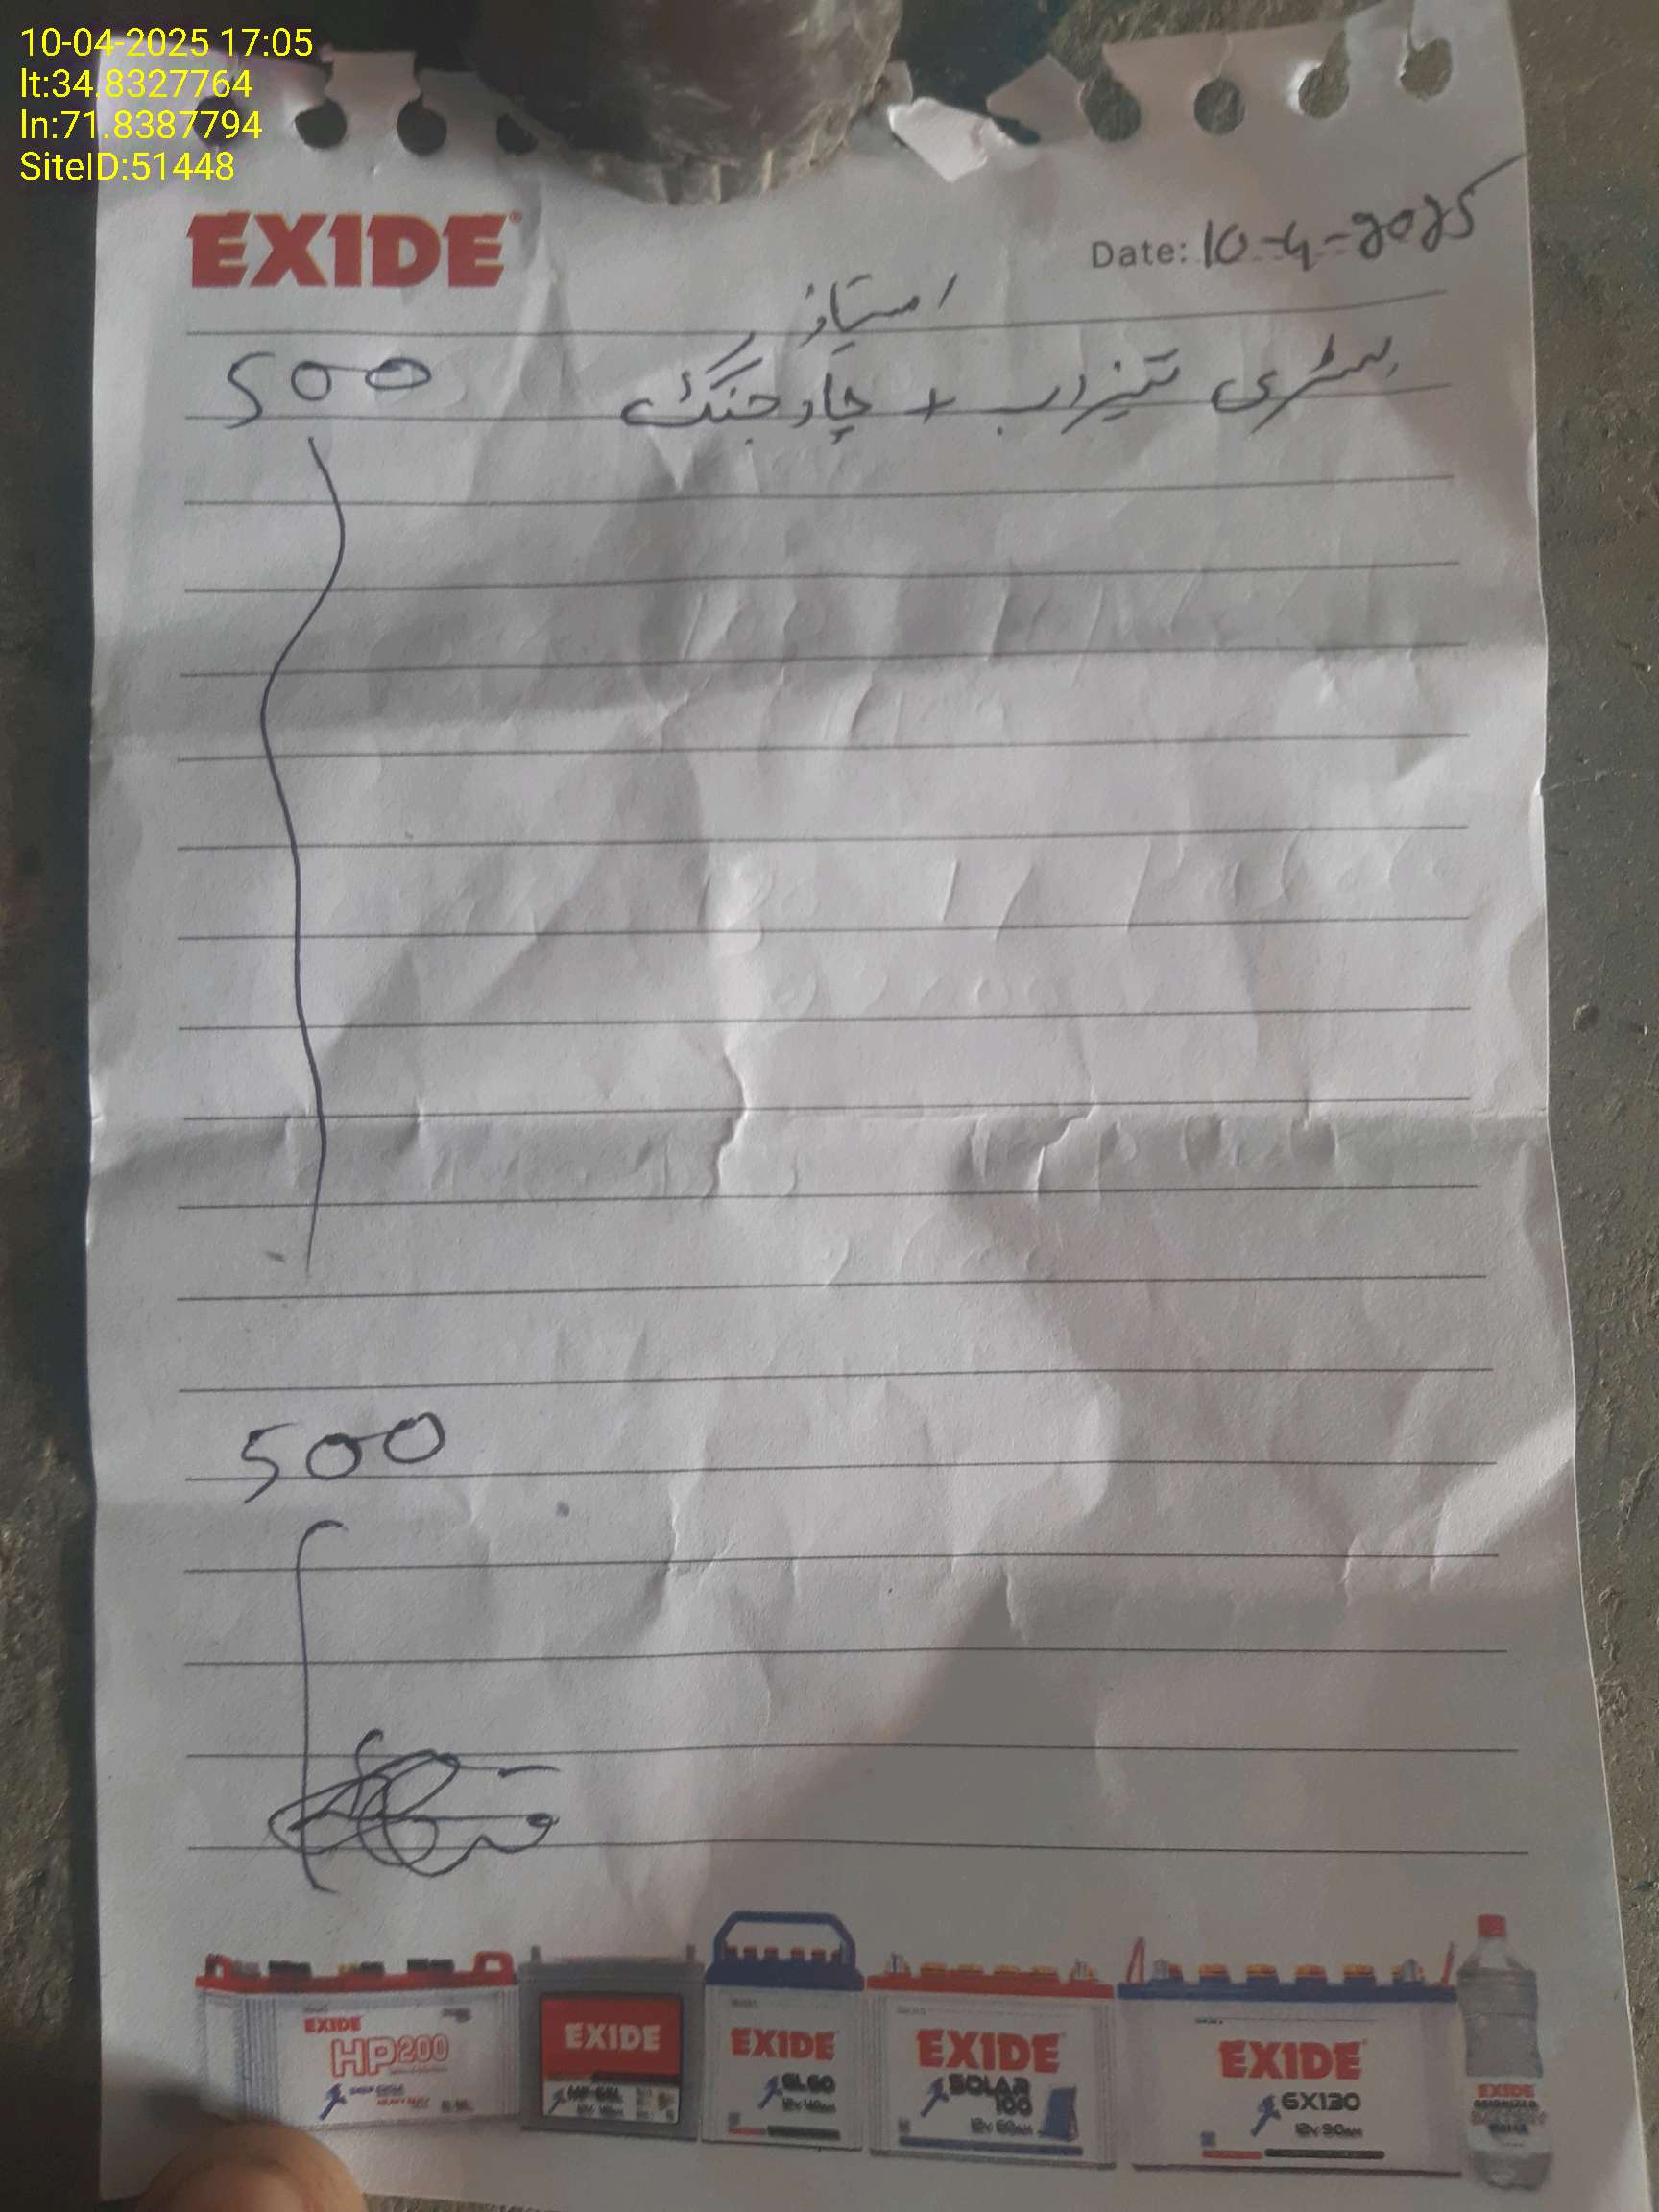 10-04-2025 17:05
lt:34.8327764
ln:71.8387794
SiteID:51448
EXIDE
Date: 10-4-2025
استاذ
بیٹری تیزاب + چارجنگ 500
500
EXIDE
HP200
EXIDE
EXIDE
EXIDE
SOLAR
100
EXIDE
6X130
EXIDE